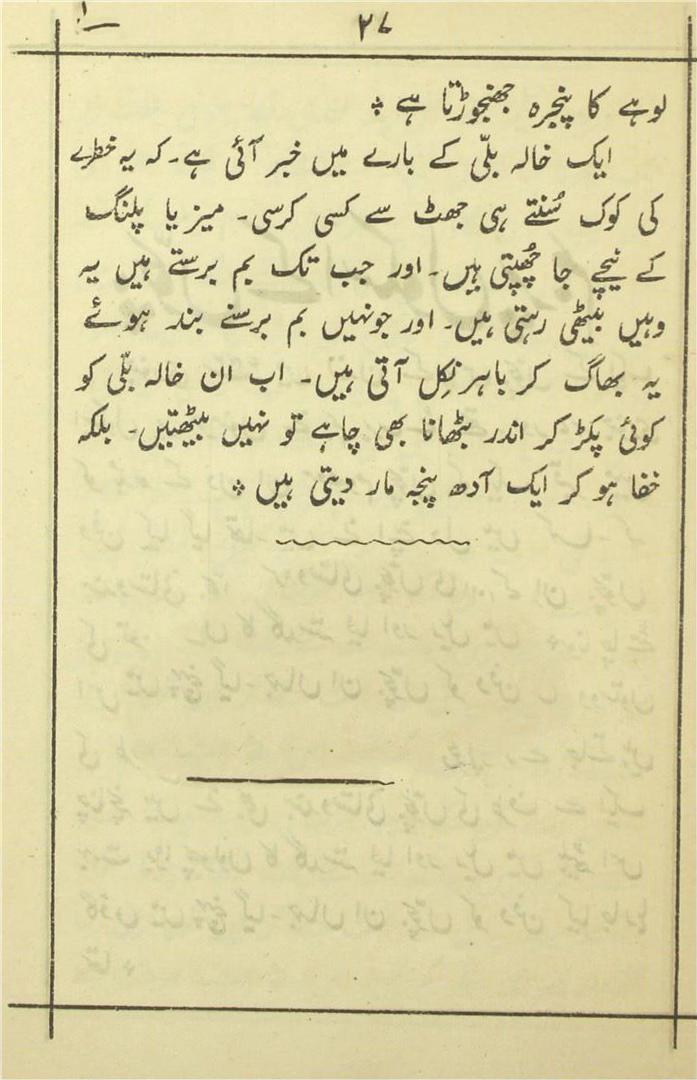 ۲۷
لوہے کا پنجرہ جھنجوڑتا ہے ٭
ایک خالہ بلّی کے بارے میں خبر آئی ہے۔ کہ یہ خطرے
کی کوک سُنتے ہی جھٹ سے کسی کرسی۔ میز یا پلنگ
کے نیچے جا چُھپتی ہیں۔ اور جب تک بم برستے ہیں یہ
وہیں بیٹھی رہتی ہیں۔ اور جونہیں بم برسنے بند ہوئے
یہ بھاگ کر باہر نکِل آتی ہیں۔ اب ان خالہ بلّی کو
کوئی پکڑ کر اندر بٹھانا بھی چاہے تو نہیں بیٹھتیں۔ بلکہ
خفا ہو کر ایک آدھ پنجہ مار دیتی ہیں ٭